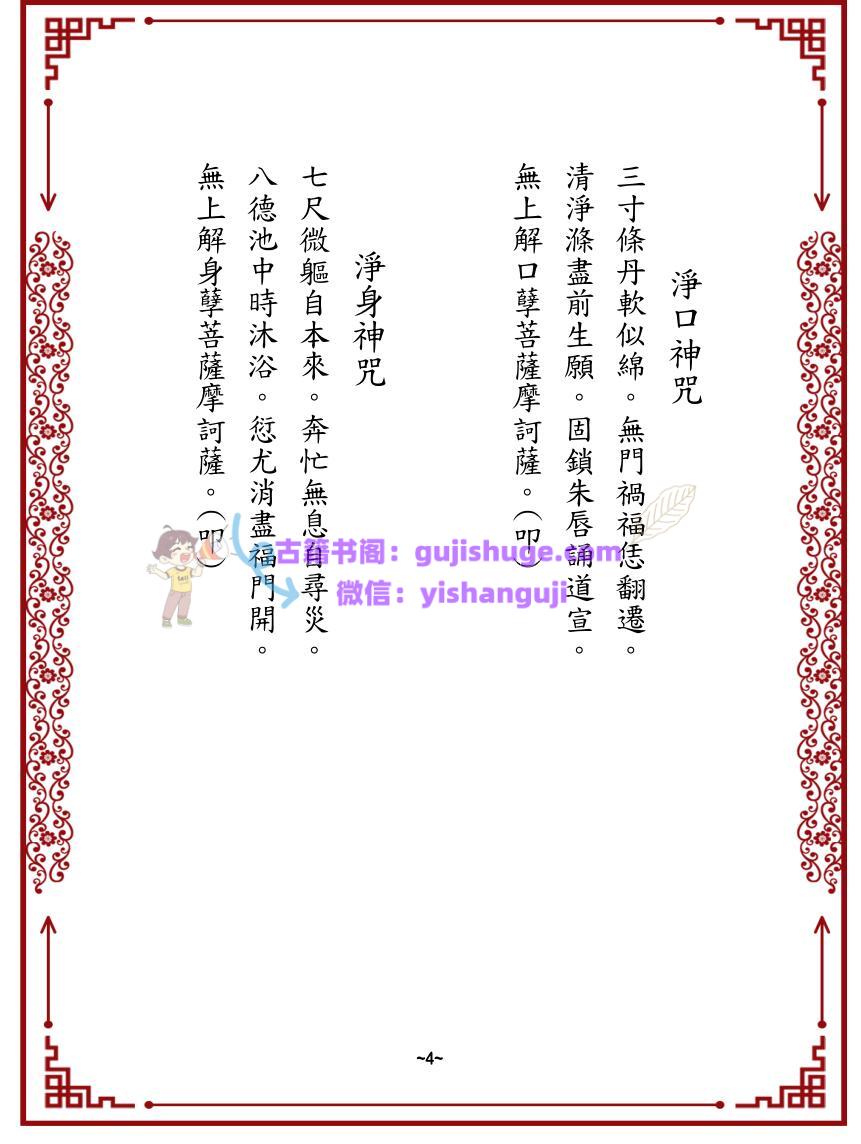 淨口神咒
三寸條丹軟似綿。無門禍福恁翻遷。
清淨滌盡前生願。固鎖朱唇誦道宣。
無上解口孽菩薩摩訶薩。(叩)
淨身神咒
七尺微軀自本來。奔忙無息自尋災。
八德池中時沐浴。愆尤消盡福門開。
無上解身孽菩薩摩訶薩。(叩)
古籍书阁：gujishuge.com
微信：yishanguji
~4~